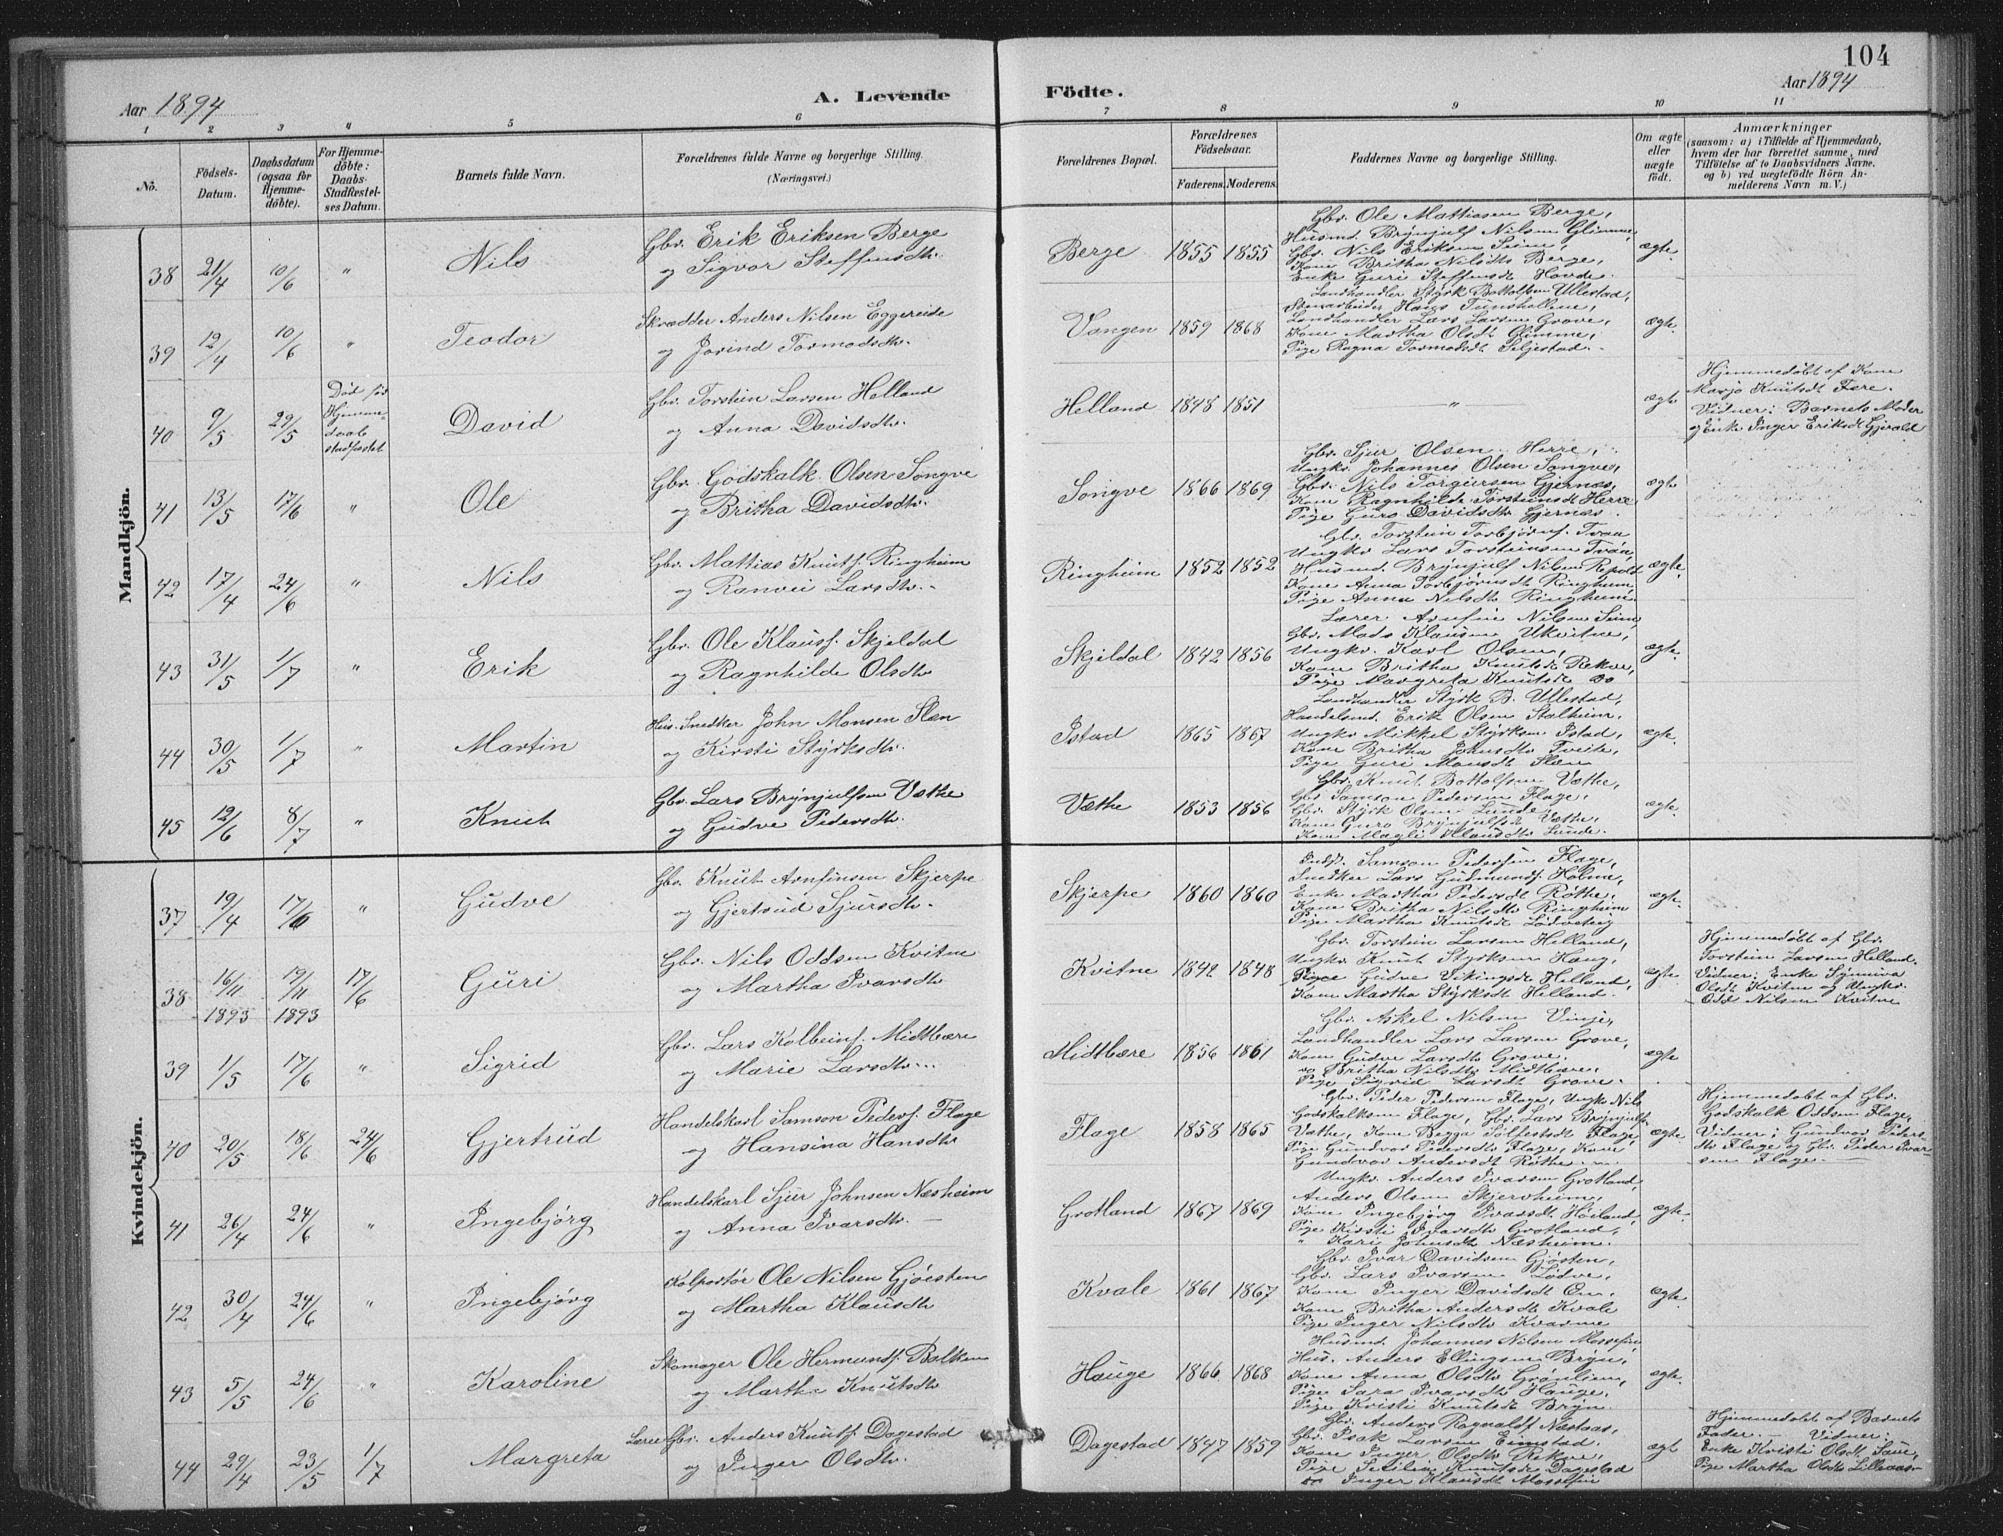 104
Aar 1894
A. Levende Födte.
Aar 1894
1 2 3 4 5 6 7 8 9 10 11
No.
Födsels-
Datum.
Daabsdatum
(ogsaa for
Hjemme-
döbte).
For Hjemme-
döbte:
Daabs-
Stadfæstel-
ses Datum.
Barnets fulde Navn.
Forældrenes fulde Navne og borgerlige Stilling.
(Næringsvei.)
Forældrenes Bopæl.
Forældrenes
Födselsaar.
Faderens. Moderens.
Faddernes Navne og borgerlige Stilling.
Om ægte
eller
uægte
födt.
Anmærkninger
(saasom: a) i Tilfælde af Hjemmedaab,
hvem der har forrettet samme, med
Tilföielse af to Daabsvidners Navne,
og b) ved uægtefödte Börn An-
melderens Navn m. V.)
Mandkjön.
38 21/4 10/6 " Nils
Gbr. Erik Eriksen Berge
og Sigvor Steffensdtr.
Berge 1855 1855
Gbr. Ole Mattiasen Berge,
Husmd. Brynjulf Nilsen Glimme,
Gbr. Nils Eriksen Seim,
Kone Britha Nilsdtr Berge,
Enke Guri Steffensdt Hovde.
ægte
39 12/4 10/6 " Teodor
Skrædder Anders Nilsen Eggereide
og Jorind Tormodsdtr.
Vangen 1859 1868
Landhandler Styrk Bottolfsen Ullestad,
Stenarbeider Hans Tunshellene,
Landhandler Lars Larsen Grove,
Kone Martha Olsdt Glimme,
Pige Ragna Tormodsdt Seljestad.
ægte.
40 9/5 29/5
Död før
Hjemme-
daab
stadfæstet
David
Gbr. Torstein Larsen Helland
og Anna Davidsdtr.
Helland 1848 1851
"
ægte
Hjemmedøbt af Kone
Marjo Knutsdt Fære.
Vidner: Barnets Moder
og Enke Inger Eriksdt Gjerald
41 13/5 17/6 " Ole
Gbr. Godskalk Olsen Songve
og Britha Davidsdtr.
Songve 1866 1869
Gbr. Sjur Olsen Herre,
Ungkr. Johannes Olsen Songve,
Gbr. Nils Torgersen Gjernes,
Kone Ragnhilde Torsteinsdt Herre
Pige Guro Davidsdtr Gjernes.
ægte
42 17/4 24/6 " Nils
Gbr. Mattias Knutsf. Ringheim
og Ranvei Larsdtr.
Ringheim 1852 1852
Gbr. Torstein Torbjørnsf. Tvau
Ungkr Lars Torsteinsen Tvau,
Husmd. Brynjulf Nilsen Repold
Kone Anna Torbjørnsdt Ringheim,
Pige Anna Nilsdtr Ringheim.
ægte.
43 31/5 1/7 " Erik
Gbr. Ole Klausf. Skjeldal
og Ragnhilde Olsdtr
Skjeldal 1842 1856
Lærer Arnfin Nilsen Seim
Gbr. Mads Klausen Ukvitne,
Ungkr. Karl Olsen,
Kone Britha Knutsdt Rekve,
Pige Margreta Knutsdt do
ægte.
44 30/5 1/7 " Martin
Hus. Snedker John Monsen Slæn
og Kirsti Styrksdtr.
Istad 1865 1867
Landhandler Styrk B. Ullestad,
Handelsmd. Erik Olsen Stalheim,
Ungkr Mikkel Styrksen Istad,
Kone Britha Johnsdtr Tveite,
Pige Guri Monsdt Slæn
ægte.
45 12/6 8/7 " Knut
Gbr. Lars Brynjulfsen Væthe
og Gudve Pedersdtr.
Væthe 1853 1856
Gbr. Knut Bottolfsen Væthe,
Gbr Samson Pedersen Flage,
Gbr. Styrk Olsen Lunde,
Kone Guro Brynjulfsdt Væthe,
Kone Magli Klausdtr Lunde.
ægte.
Kvindekjön.
37 19/4 17/6 " Gudve
Gbr. Knut Arnfinsen Skjerpe
og Gjertrud Sjursdtr.
Skjerpe 1860 1860
Samson Pedersen Flage,
Snedker Lars Gudmundsf. Holme,
Enke Martha Pedersdt Røthe,
Kone Britha Nilsdtr Ringheim
Pige Martha Knutsdt
ægte.
38 16/11 1893 19/11 1893 17/6 Guri
Gbr. Nils Oddsen Kvitne
og Martha Ivarsdtr
Kvitne 1842 1848
Gbr. Torstein Larsen Helland,
Ungkr. Knut Styrksen Haug,
Pige Gudve Vikingsdt Helland,
Kone Martha Styrksdt Helland.
ægte.
Hjemmedøbt af Gbr.
Torstein Larsen Helland.
Vidner: Enke Synneva
Olsdt Kvitne og Ungkr.
Odd Nilsen Kvitne
39 1/5 17/6 " Sigrid
Gbr. Lars Kolbeinsf. Midtbære
og Marie Larsdtr.
Midtbære 1856 1861
Gbr. Askel Nilsen Vinje,
Landhandler Lars Larsen Grove,
Kone Gudve Larsdtr Grove.
" Britha Nilsdtr Midtbære,
Pige Sigrid Larsdt Grove.
ægte
40 20/5 18/6 24/6 Gjertrud
Handelskarl Samson Pedersf. Flage
og Hansina Hansdtr
Flage 1858 1865
Gbr. Peder Pedersen Flage, Ungkr Nils
Godskalksen Flage, Gbr. Lars Brynjulfs.
Væthe, Kone Begga Sølfestsdt Flage,
Pige Gundvor Pedersdtr Flage, Kone
Gundvor Andersdt Røthe.
ægte
Hjemmedøbt af Gbr.
Godskalk Oddsen Flage,
Vidner: Gundvor Peders-
dtr Flage og Gbr. Peder Ivar-
sen Flage.
41 26/4 24/6 " Ingebjørg
Handelskarl Sjur Johnsen Næsheim
og Anna Ivarsdtr.
Grotland 1867 1869
Ungkr. Anders Ivarsen Grotland,
Anders Olsen Skjervheim,
Kone Ingebjørg Ivarsdt Høiland,
Pige Kirsti Ivarsdtr Grotland,
" Kari Johnsdtr Næsheim.
ægte.
42 30/4 24/6 " Ingebjørg
Kolportør Ole Nilsen Gjøesten
og Martha Klausdtr
Kvale 1861 1867
Gbr. Ivar Davidsen Gjøsten,
Gbr. Lars Ivarsen Lødve,
Kone Inger Davidsdt Øn,
Kone Britha Andersdt Kvale
Pige Inger Nilsdtr Kvarme
ægte.
43 5/5 24/6 " Karoline
Skomager Ole Hermundsf. Balken
og Martha Knutsdtr
Hauge 1866 1868
Husmd. Johannes Nilsen Mossefin,
Hus. Anders Ellingsen Bryn,
Kone Anna Olsdtr Grønlien,
Pige Sara Ivarsdtr Hauge,
Pige Kristi Knutsdt Bryn.
ægte.
44 29/4 23/5 1/7 Margreta
Lærer Gbr. Anders Knutsf. Dagestad
og Inger Olsdtr.
Dagestad 1847 1859
Gbr. Anders Ragnaldsf Næstaas,
Gbr. Isak Larsen Eimstad.
Kone Inger Olsdtr Rekve
Pige Seselia Knutsdt Dagestad
do Inger Klausdt Mossefin
ægt
Hjemmedøbt af Barnets
Fader. Vidner:
Enke Kristi Olsdt Saue,
Pige Martha Olsdtr Lilleaas